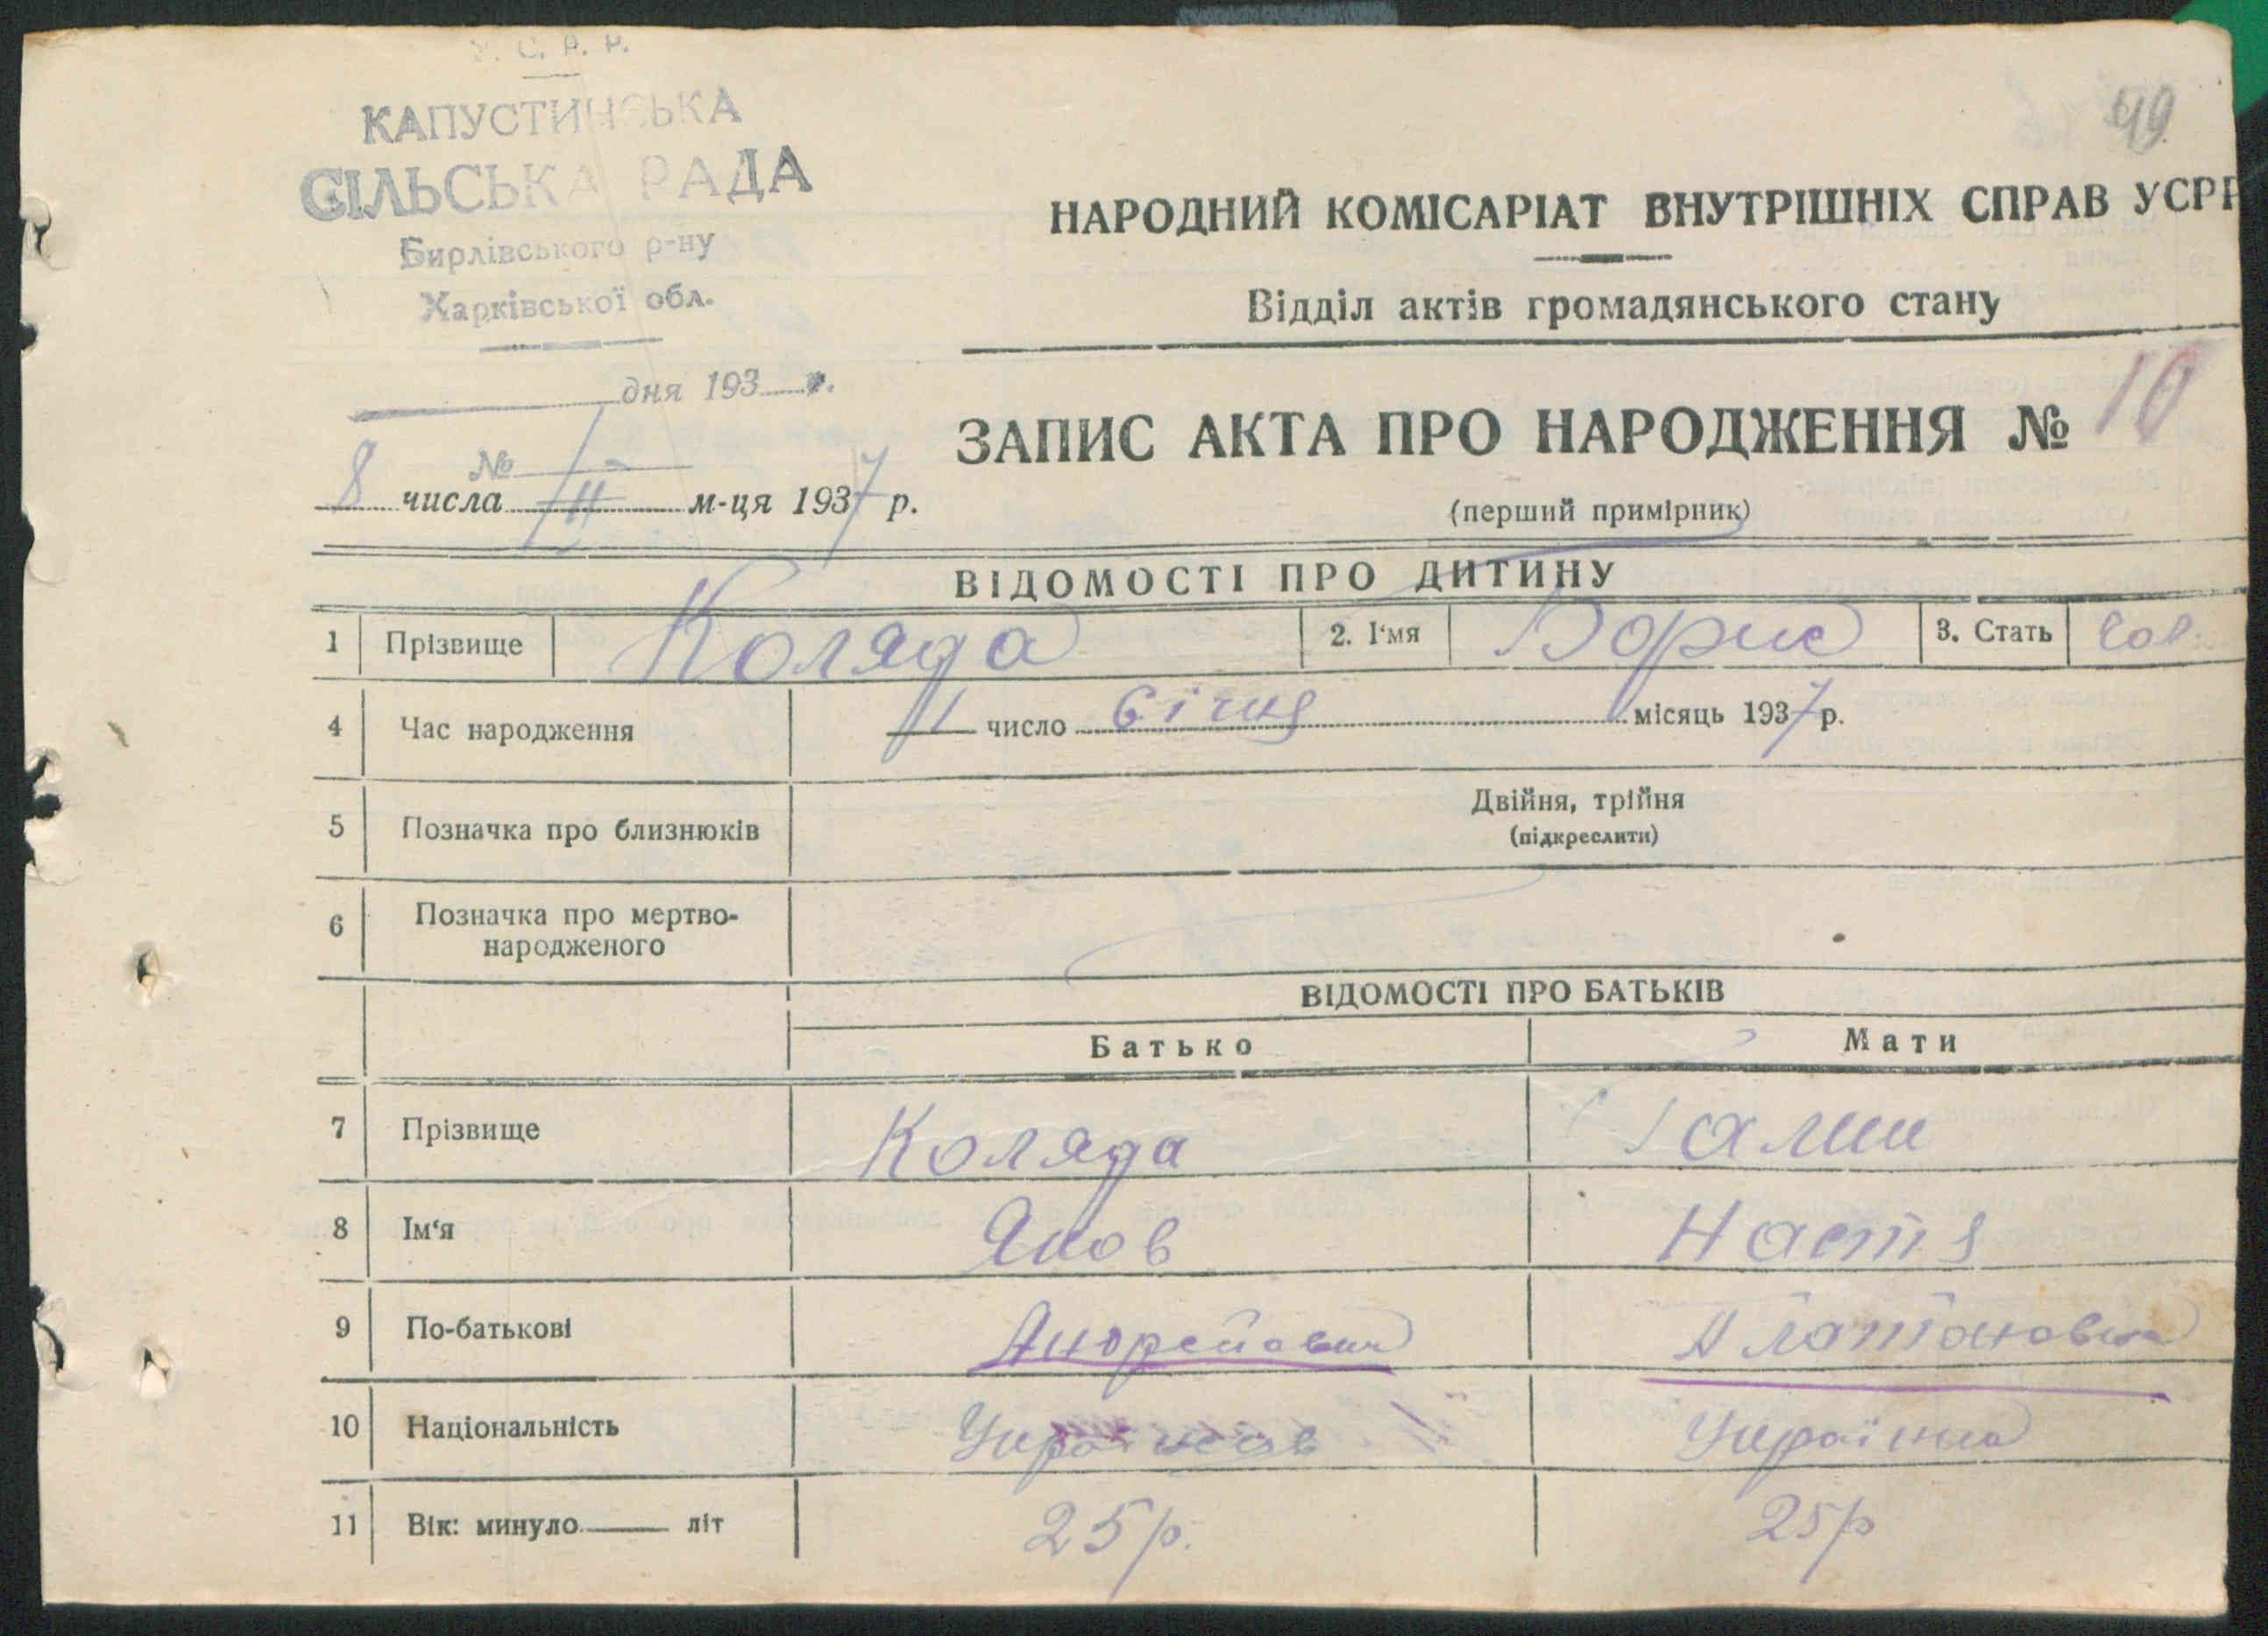 У. С. Р. Р.
КАПУСТИНСЬКА
СІЛЬСЬКА РАДА
Бирлівського р-ну
Харківської обл.
дня 193 р.
№
49
НАРОДНИЙ КОМІСАРІАТ ВНУТРІШНІХ СПРАВ УСРР
Відділ актів громадянського стану
ЗАПИС АКТА ПРО НАРОДЖЕННЯ № 10
8 числа II м-ця 1937 р.
(перший примірник)
ВІДОМОСТІ ПРО ДИТИНУ
1 Прізвище Коляда 2. І'мя Борис 3. Стать чол.
4 Час народження число Січня місяць 1937 р.
5 Позначка про близнюків Двійня, трійня
(підкреслити)
6 Позначка про мертво-
народженого
ВІДОМОСТІ ПРО БАТЬКІВ
Батько Мати
7 Прізвище Коляда
8 Ім'я Яков Настя
9 По-батькові Андрейович Платоновна
10 Національність Українка
11 Вік: минуло літ 25 р. 25 р